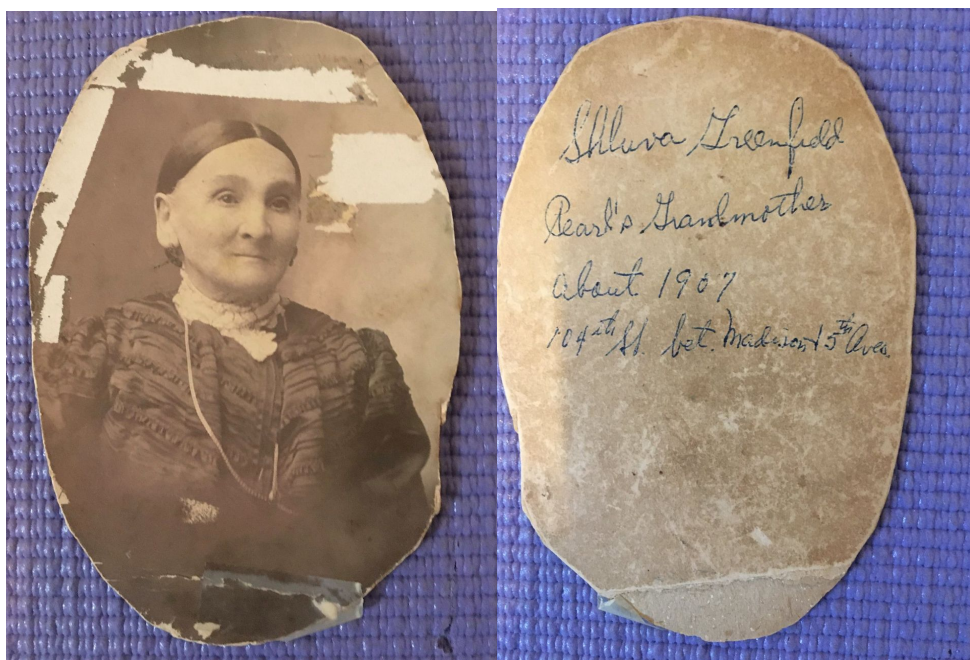 Shluva Greenfield
Pearl's Grandmother
about 1907
104th St. bet. Madison & 5th Aves.